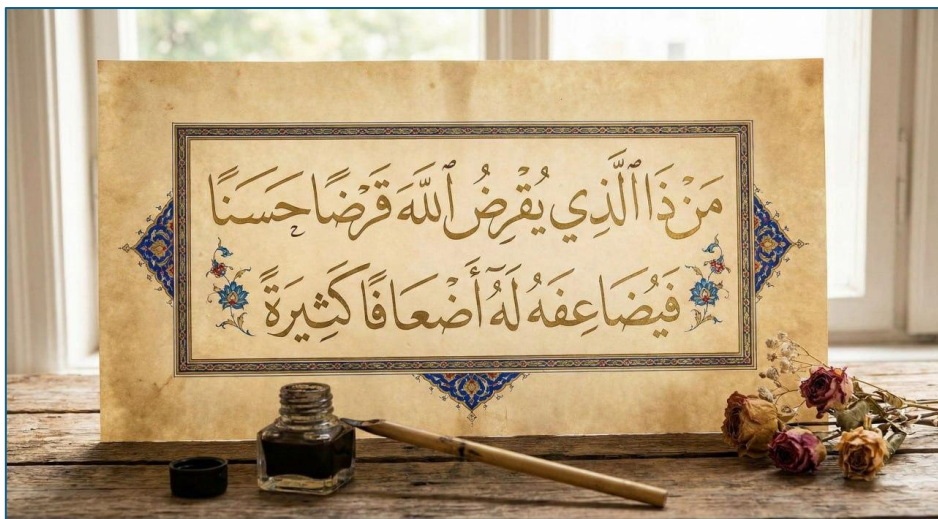 مَنْ ذَا ٱلَّذِي يُقْرِضُ ٱللَّهَ قَرْضًا حَسَنًا
فَيُضَاعِفَهُ لَهُٓ أَضْعَافًا كَثِيرَةً